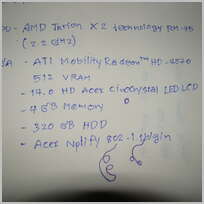 - AMD Turion X2 technology RM-75
(2.2 GHz)
- ATI Mobility Radeon™ HD-4570
512 VRAM
- 14.0 HD Acer CineCrystal LED LCD
- 4 GB Memory
- 320 GB HDD
- Acer Nplify 802-1.1b/g/n